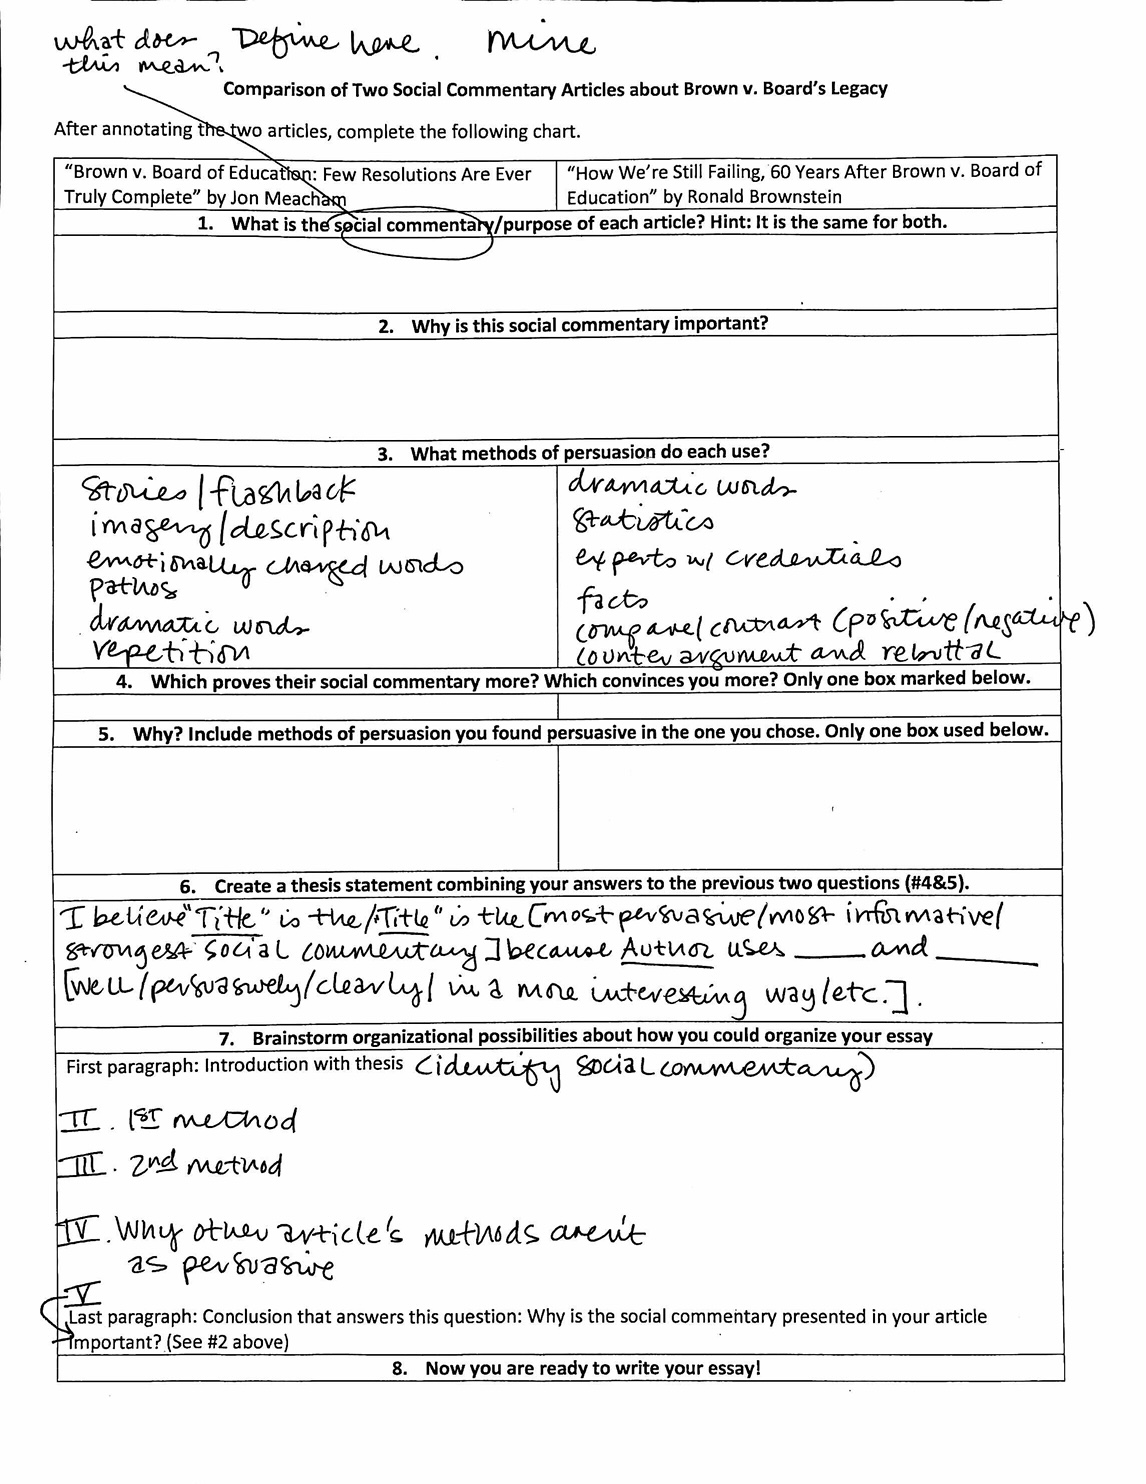 what does Define here. mine
this mean?
Comparison of Two Social Commentary Articles about Brown v. Board's Legacy
After annotating the two articles, complete the following chart.
"Brown v. Board of Education: Few Resolutions Are Ever
Truly Complete" by Jon Meacham
"How We're Still Failing, 60 Years After Brown v. Board of
Education" by Ronald Brownstein
1. What is the social commentary/purpose of each article? Hint: It is the same for both.
2. Why is this social commentary important?
3. What methods of persuasion do each use?
Stories/flashback
imagery/description
emotionally charged words
pathos
dramatic words
repetition
dramatic words
statistics
experts w/ credentials
facts
compare/contrast (positive/negative)
counter argument and rebuttal
4. Which proves their social commentary more? Which convinces you more? Only one box marked below.
5. Why? Include methods of persuasion you found persuasive in the one you chose. Only one box used below.
6. Create a thesis statement combining your answers to the previous two questions (#4&5).
I believe "Title" is the/"Title" is the [most persuasive/most informative/
strongest social commentary] because Author uses ____ and ____
[well/persuasively/clearly/ in a more interesting way/etc.].
7. Brainstorm organizational possibilities about how you could organize your essay
First paragraph: Introduction with thesis (identify social commentary)
II. 1st method
III. 2nd method
IV. Why other article's methods aren't
as persuasive
V
Last paragraph: Conclusion that answers this question: Why is the social commentary presented in your article
important? (See #2 above)
8. Now you are ready to write your essay!